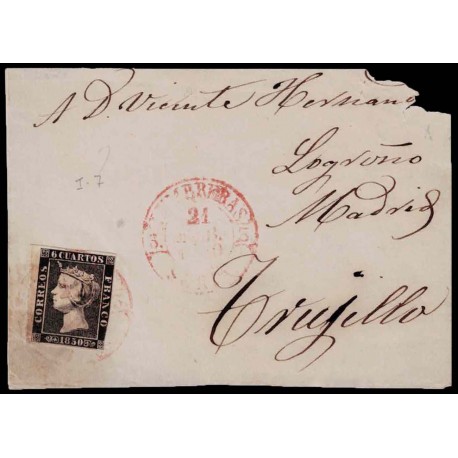 A D. Vicente Hernan
Logroño
Madrid
Trujillo
I-7
21
6 CUARTOS
CORREOS
FRANCO
1850